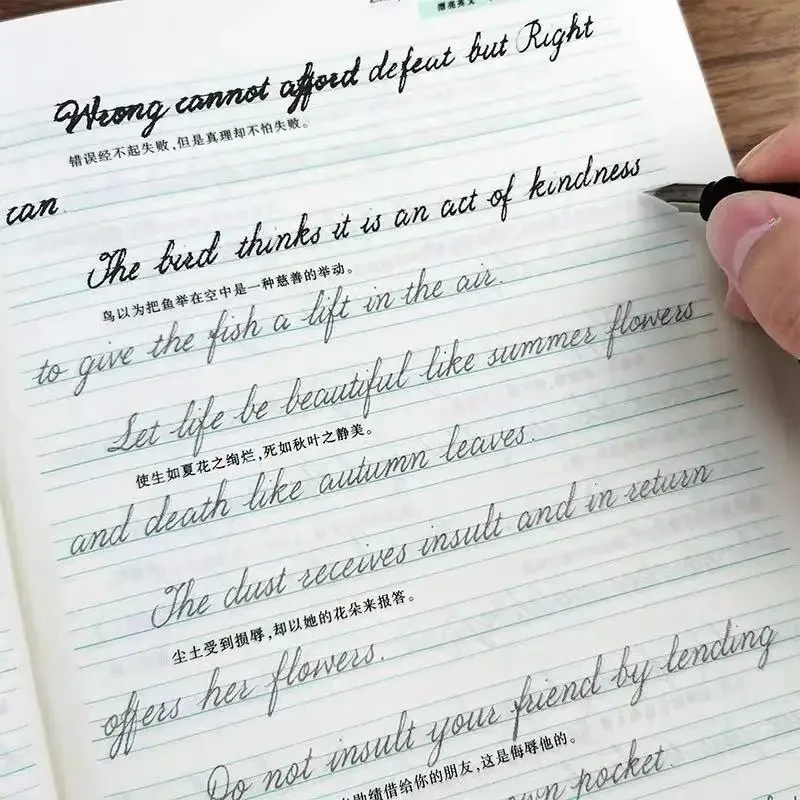 漂亮英文
Wrong cannot afford defeat but Right
错误经不起失败,但是真理却不怕失败。
can
The bird thinks it is an act of kindness
鸟以为把鱼举在空中是一种慈善的举动。
to give the fish a lift in the air.
Let life be beautiful like summer flowers
使生如夏花之绚烂,死如秋叶之静美。
and death like autumn leaves.
The dust receives insult and in return
尘土受到损辱,却以她的花朵来报答。
offers her flowers.
Do not insult your friend by lending
绩借给你的朋友,这是侮辱他的。
own pocket.